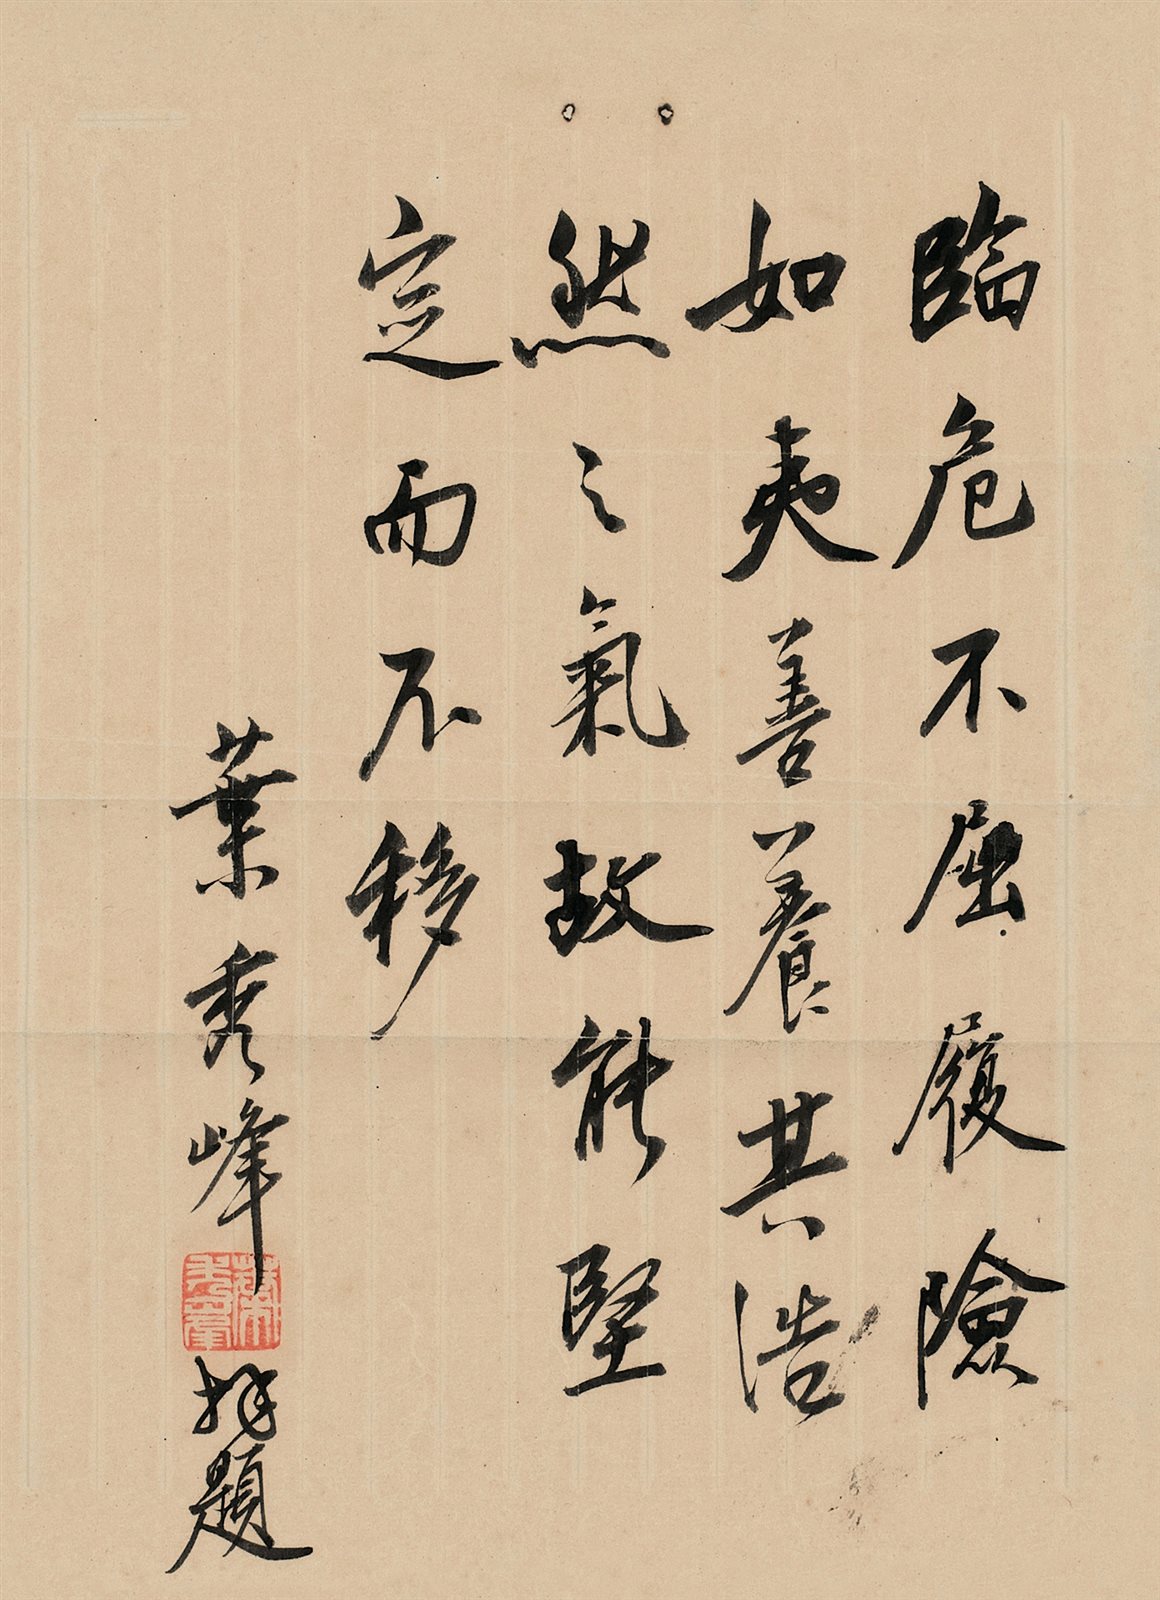 臨危不屈履險
如夷善養其浩
然之氣故能堅
定而不移
葉秀峰拜題
葉秀峯